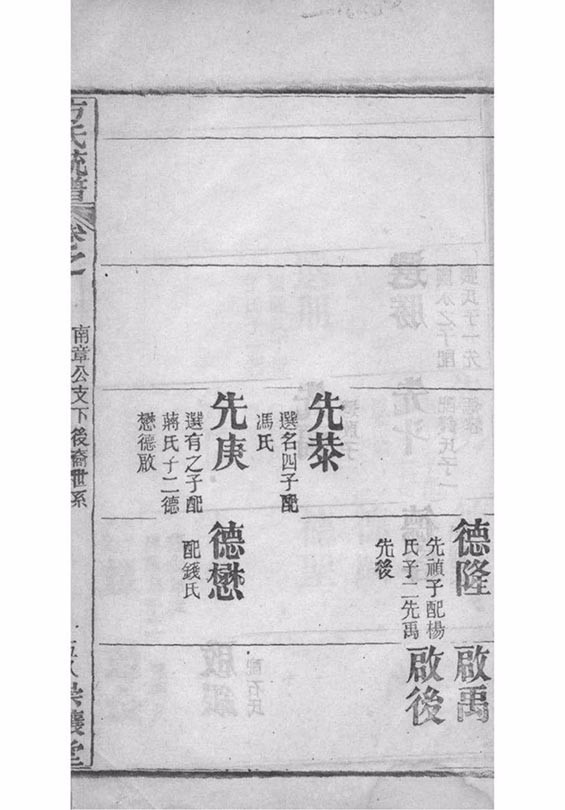 德隆
先禎子配楊
氏子二先禹
先後
啟禹
啟後
先恭
選名四子配
馮氏
先庚
選有之子配
蔣氏子二德
懋德啟
德懋
配錢氏
方氏統譜
卷之
南章公支下後裔世系